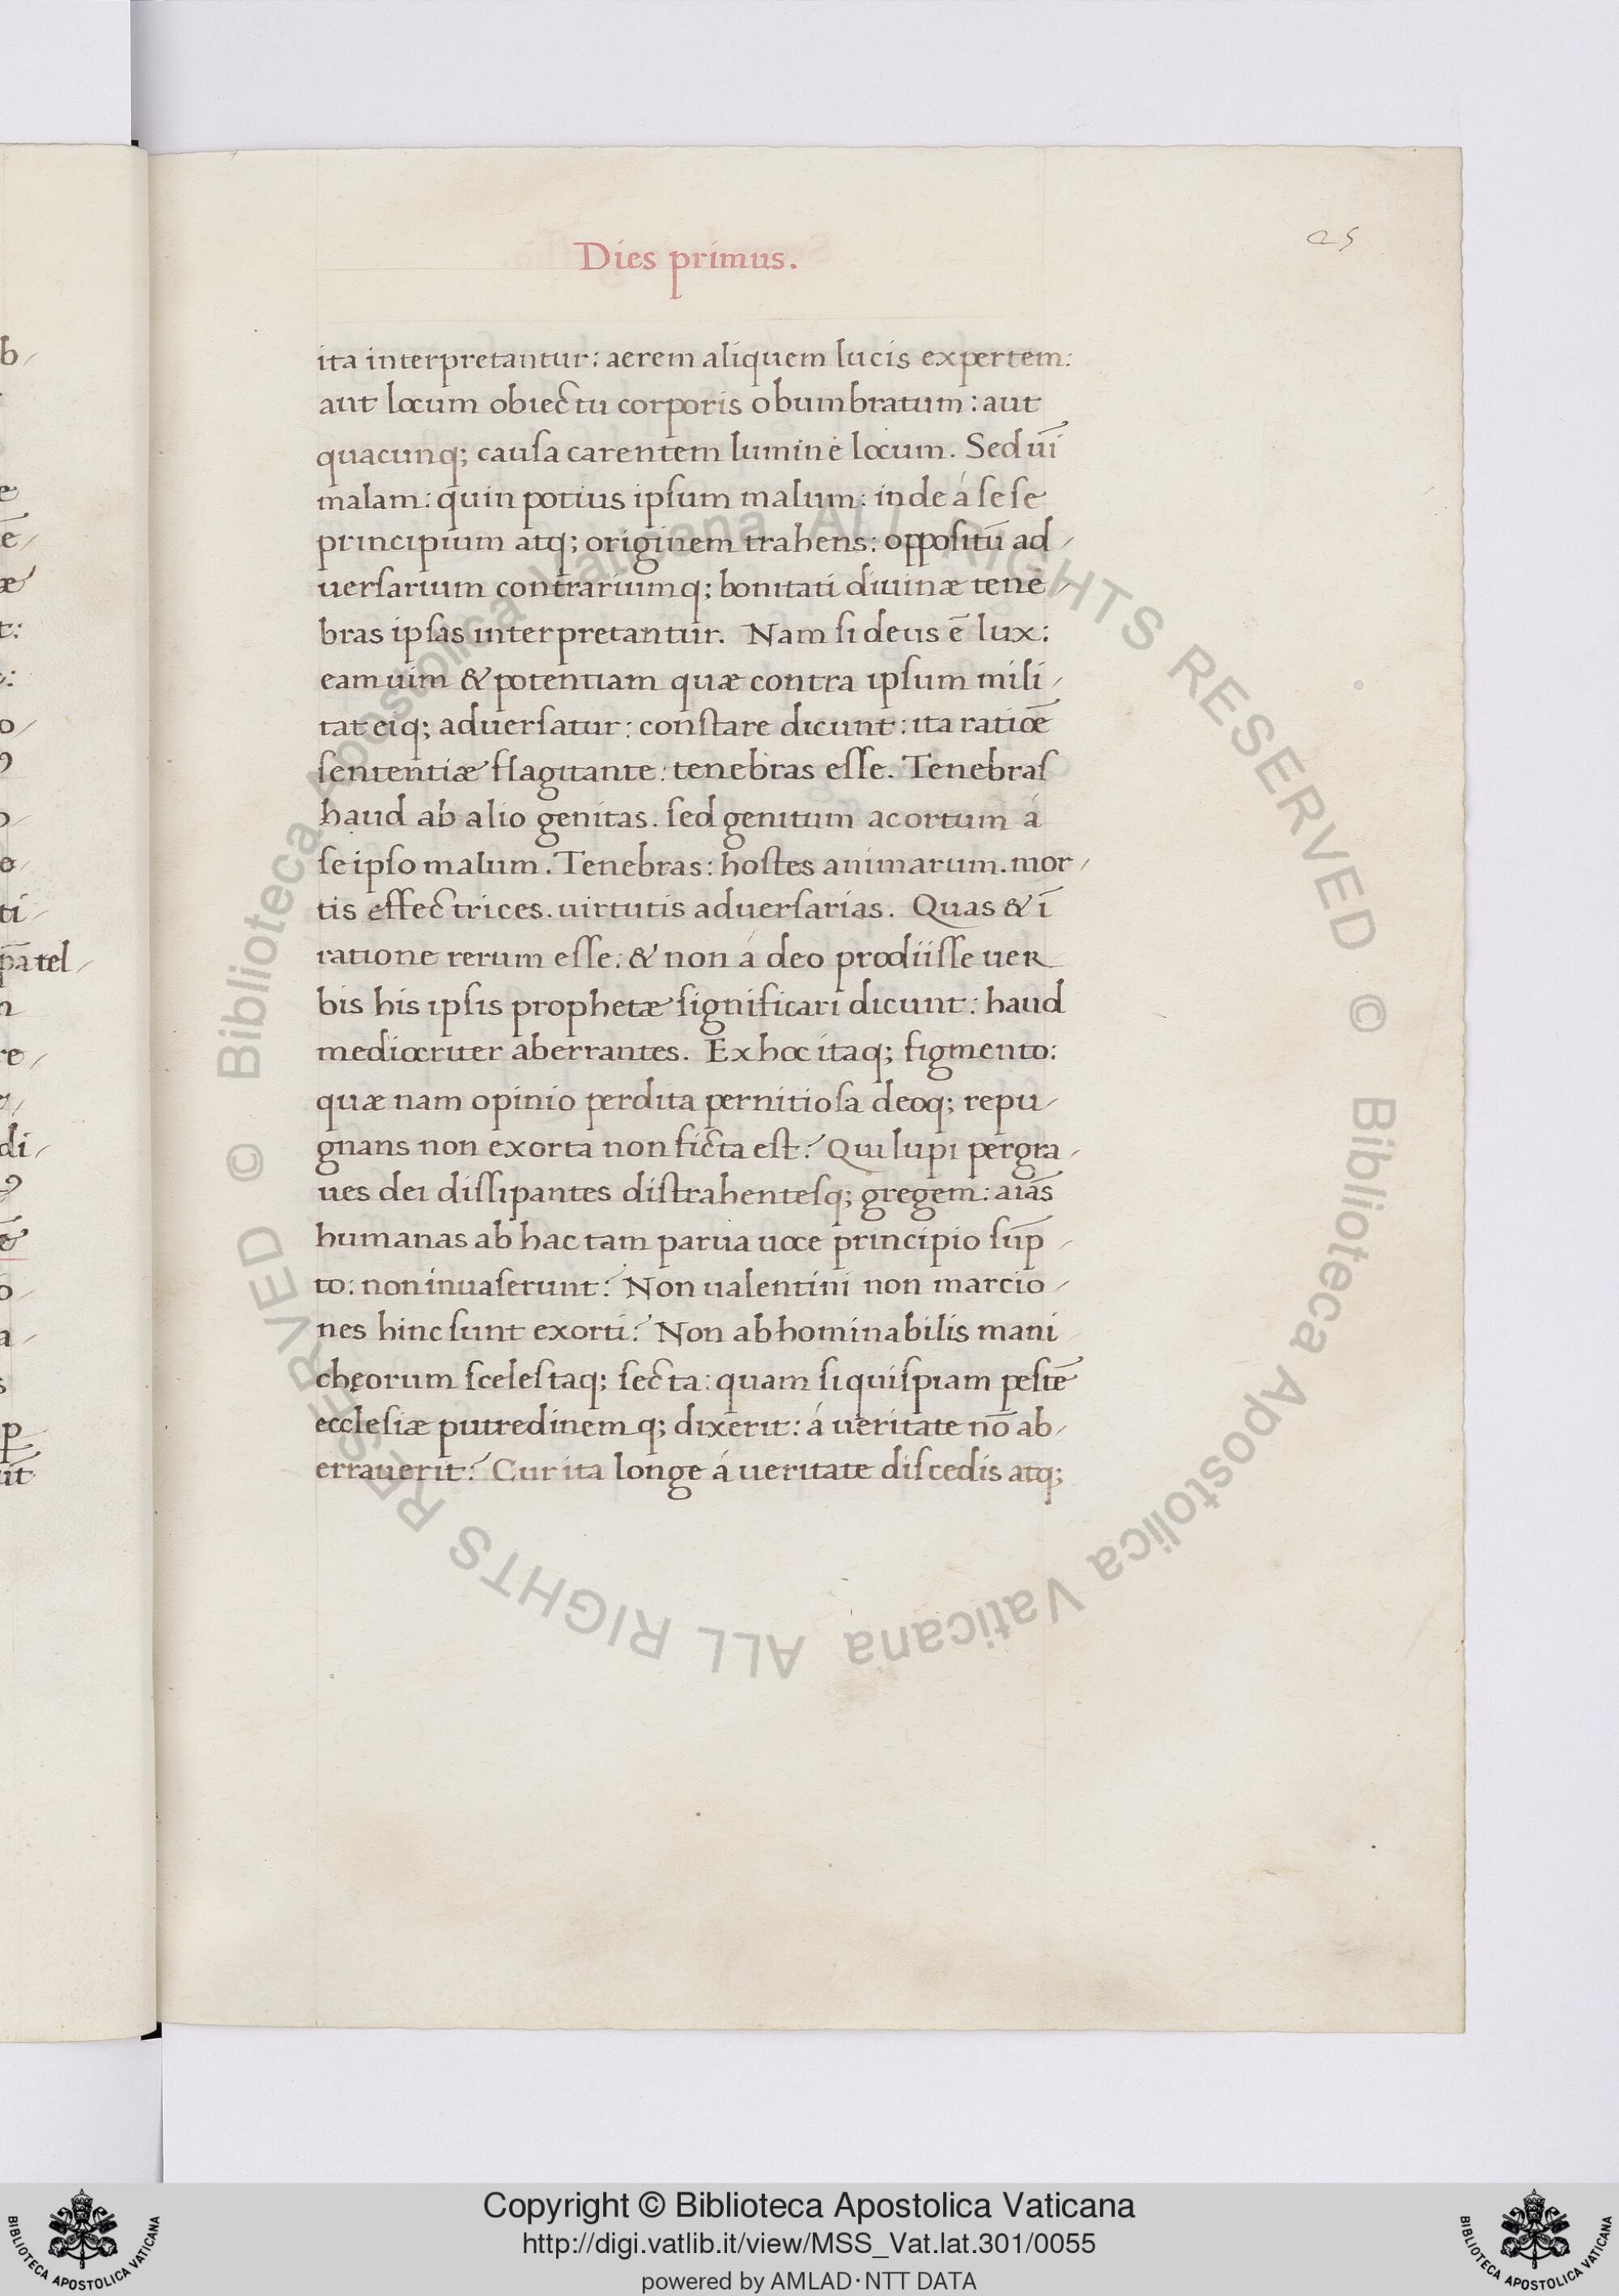 Dies primus.
25
ita interpretantur: aerem aliquem lucis expertem:
aut locum obiectu corporis obumbratum: aut
quacunq; causa carentem lumine locum. Sed uī
malam: quin potius ipsum malum: inde á sese
principium atq; originem trahens: oppositū ad/
uersarium contrariumq; bonitati diuinæ tene/
bras ipsas interpretantur. Nam si deus ē lux:
eam uim & potentiam quæ contra ipsum mili/
tat eiq; aduersatur: constare dicunt: ita ratiōe
sententiæ flagitante: tenebras esse. Tenebras
haud ab alio genitas. sed genitum ac ortum á
se ipso malum. Tenebras: hostes animarum. mor/
tis effectrices. uirtutis aduersarias. Quas & ī
ratione rerum esse: & non á deo prodiisse uer
bis his ipsis prophetæ significari dicunt: haud
mediocriter aberrantes. Ex hoc itaq; figmento:
quæ nam opinio perdita pernitiosa deoq; repu/
gnans non exorta non ficta est? Qui lupi pergra/
ues dei dissipantes distrahentesq; gregem: aīas
humanas ab hac tam parua uoce principio sūp/
to: non inuaserunt? Non ualentini non marcio/
nes hinc sunt exorti? Non abhominabilis mani
cheorum scelestaq; secta: quam si quispiam pestē
ecclesiæ putredinemq; dixerit: á ueritate nō ab/
errauerit? Cur ita longe á ueritate discedis atq;
b/
e
ē/
æ
t:
:
o/
o/
ti/
tel/
re/
di/
a/
s
p
it
© Biblioteca Apostolica Vaticana ALL RIGHTS RESERVED © Biblioteca Apostolica Vaticana ALL RIGHTS RESERVED
Copyright © Biblioteca Apostolica Vaticana
http://digi.vatlib.it/view/MSS_Vat.lat.301/0055
powered by AMLAD·NTT DATA
BIBLIOTECA APOSTOLICA VATICANA
BIBLIOTECA APOSTOLICA VATICANA